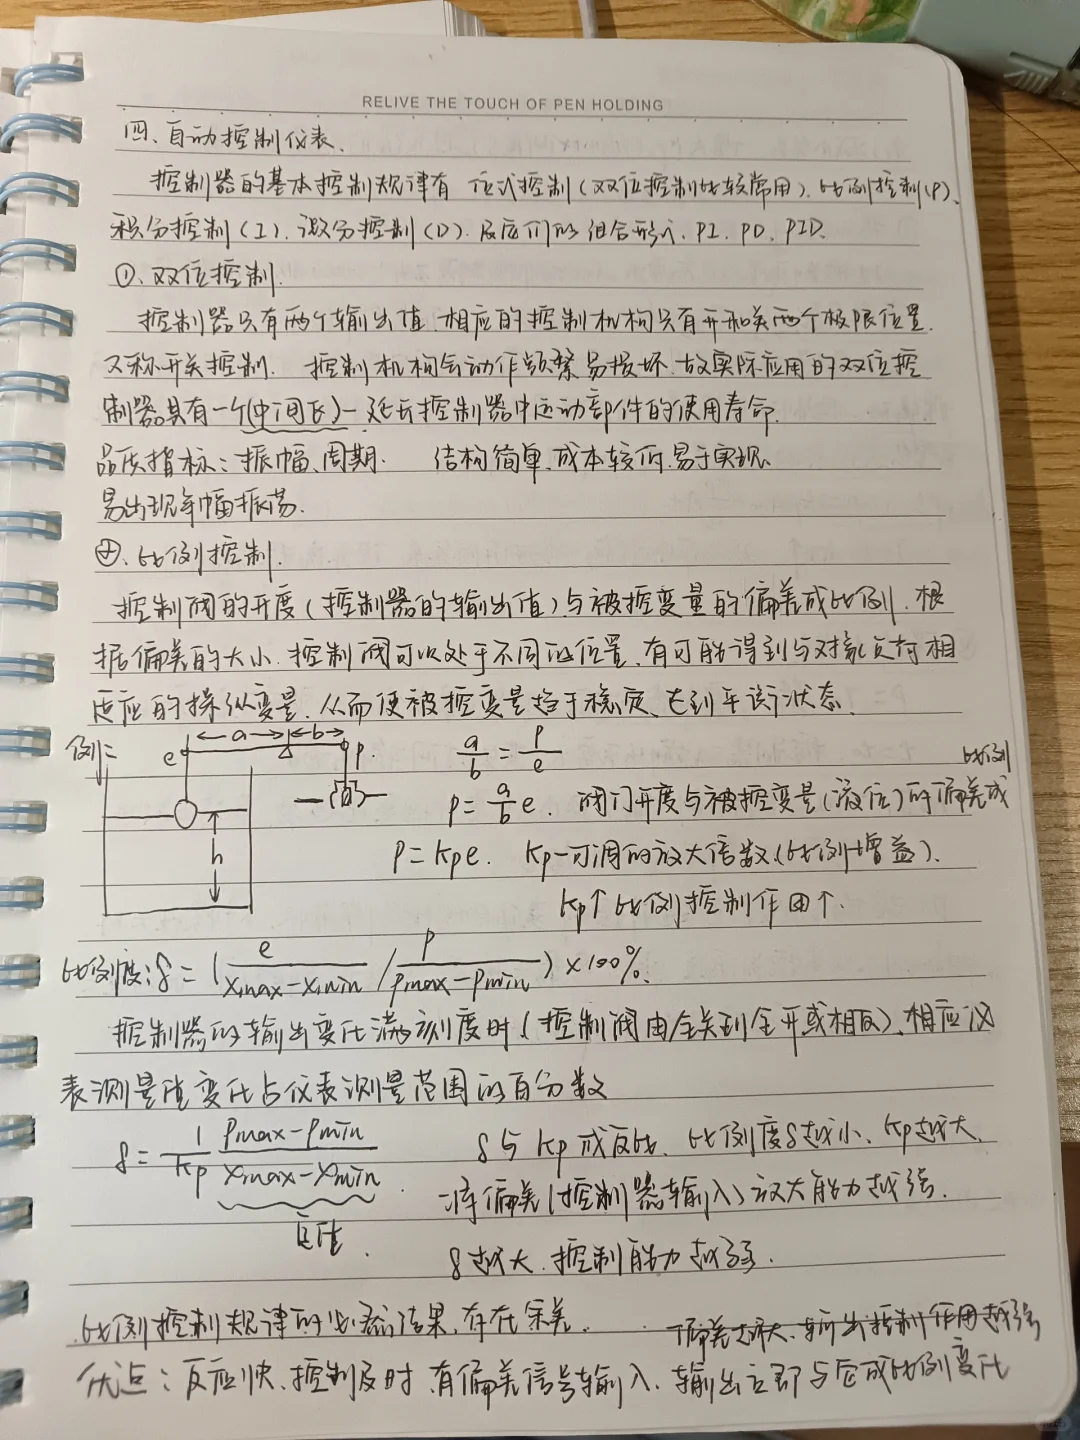 RELIVE THE TOUCH OF PEN HOLDING
四、自动控制仪表、
控制器的基本控制规律有 位式控制(双位控制比较常用)、比例控制(P)、
积分控制(I)、微分控制(D)、及它们的组合形式、PI、PD、PID、
①、双位控制
控制器只有两个输出值 相应的控制机构只有开和关两个极限位置、
又称开关控制. 控制机构会动作频繁易损坏、故实际应用的双位控
制器具有一个(中间区)—延长控制器中运动部件的使用寿命.
品质指标:振幅、周期. 结构简单、成本较低、易于实现、
易出现等幅振荡.
、比例控制.
控制阀的开度(控制器的输出值)与被控变量的偏差成比例、根
据偏差的大小、控制阀可以处于不同的位置、有可能得到与对象负荷相
适应的操纵变量、从而使被控变量趋于稳定、达到平衡状态、
例:
e a b p.
a/b = p/e
比例
p = a/b e. 阀门开度与被控变量(液位)的偏差成
h
p = Kp e. Kp—可调的放大倍数(比例增益).
Kp↑ 比例控制作用↑.
比例度:δ = (e/(xmax-xmin) / p/(pmax-pmin)) ×100%.
控制器的输出变化满刻度时(控制阀由全关到全开或相反)、相应仪
表测量值变化占仪表测量范围的百分数
δ = 1/Kp (pmax-pmin)/(xmax-xmin). δ与Kp成反比、比例度δ越小、Kp越大、
将偏差(控制器输入)放大能力越强.
定值.
δ越大、控制能力越弱.
比例控制规律的必然结果、存在余差. 偏差越大、输出控制作用越强
优点:反应快、控制及时 有偏差信号输入、输出立即与它成比例变化